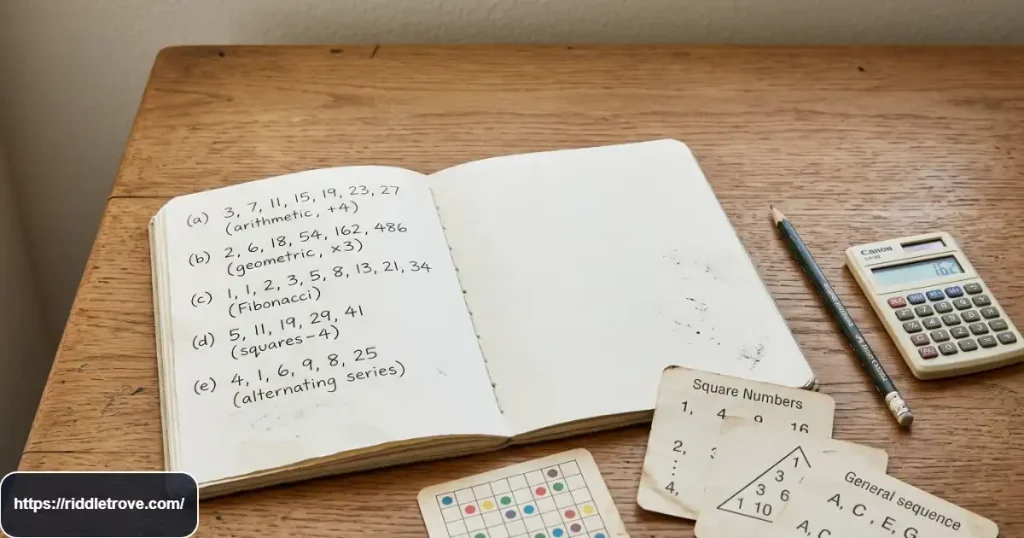 (a) 3, 7, 11, 15, 19, 23, 27
(arithmetic, +4)
(b) 2, 6, 18, 54, 162, 486
(geometric, x3)
(c) 1, 1, 2, 3, 5, 8, 13, 21, 34
(Fibonacci)
(d) 5, 11, 19, 29, 41
(squares-4)
(e) 4, 1, 6, 9, 8, 25
(alternating series)
Canon
Square Numbers
1, 4 9 16
2,
4,
1
3
3 6
1 10
General sequence
A, C, E, G
A, C
https://riddletrove.com/